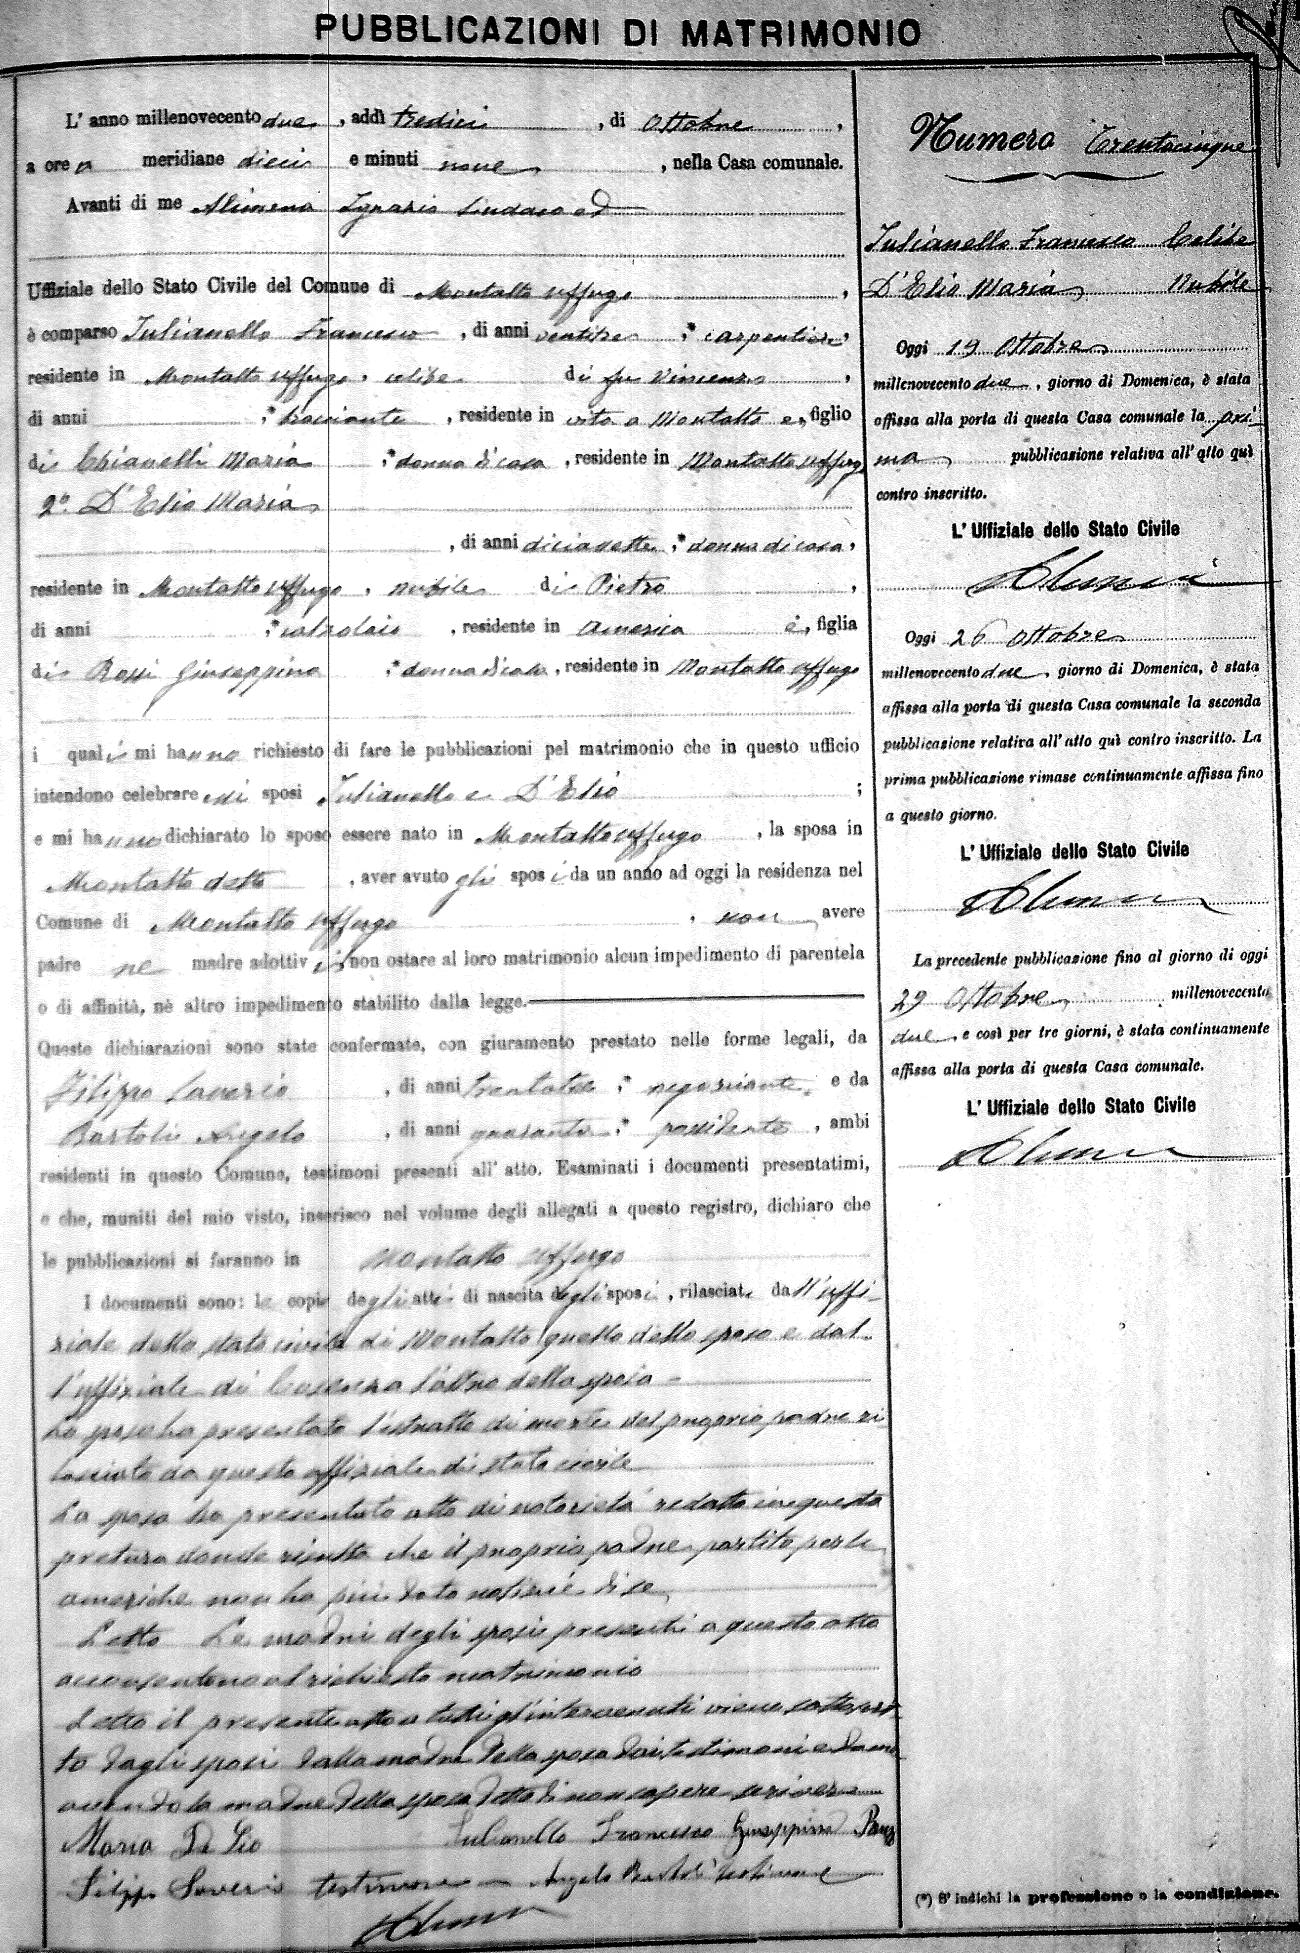 PUBBLICAZIONI DI MATRIMONIO
L' anno millenovecento due, addì tredici, di Ottobre,
a ore a meridiane dieci e minuti nove, nella Casa comunale.
Avanti di me Alimena Ignazio Sindaco ed
Uffiziale dello Stato Civile del Comune di Montalto Uffugo,
è comparso Iulianello Francesco, di anni ventitre, * carpentiere,
residente in Montalto Uffugo, celibe di fu Vincenzo,
di anni * bracciante, residente in vita a Montalto e, figlio
di Chianelli Maria * donna di casa, residente in Montalto Uffugo
2º. D'Elio Maria
, di anni diciasette, * donna di casa,
residente in Montalto Uffugo, nubile di Pietro,
di anni * calzolaio, residente in America è, figlia
di Rossi Giuseppina * donna di casa, residente in Montalto Uffugo
i quali mi hanno richiesto di fare le pubblicazioni pel matrimonio che in questo ufficio
intendono celebrare essi sposi Iulianello e D'Elio ;
e mi hanno dichiarato lo sposo essere nato in Montalto Uffugo, la sposa in
Montalto detto, aver avuto gli sposi da un anno ad oggi la residenza nel
Comune di Montalto Uffugo, non avere
padre nè madre adottivi non ostare al loro matrimonio alcun impedimento di parentela
o di affinità, nè altro impedimento stabilito dalla legge.
Queste dichiarazioni sono state confermate, con giuramento prestato nelle forme legali, da
Filippo Saverio, di anni trentatre, * negoziante, e da
Bartoli Angelo, di anni quaranta, * possidente, ambi
residenti in questo Comune, testimoni presenti all' atto. Esaminati i documenti presentatimi,
e che, muniti del mio visto, inserisco nel volume degli allegati a questo registro, dichiaro che
le pubblicazioni si faranno in Montalto Uffugo
I documenti sono: le copie degli atti di nascita degli sposi, rilasciate dall'uffi-
ziale dello stato civile di Montalto quello dello sposo e dal-
l'uffiziale di Cosenza l'altro della sposa -
Lo sposo ha presentato l'estratto di morte del proprio padre ri
lasciato da questo uffiziale di stato civile
La sposa ha presentato atto di notorietà redatto in questa
pretura donde risulta che il proprio padre partito per le
americhe non ha più dato notizie di se
Letto Le madri degli sposi presenti a questo atto
acconsentono al richiesto matrimonio
Letto il presente atto a tutti gl'intervenuti viene sottoscrit
to dagli sposi dalla madre della sposa dai testimoni e da me
avendo la madre dello sposo detto di non sapere scrivere
Maria De Lio Iulianello Francesco Giuseppina
Filippo Saverio testimone - Angelo Bartoli testimone
Alimena
Numero Trentacinque
Iulianello Francesco Celibe
D'Elio Maria Nubile
Oggi 19 Ottobre
millenovecento due, giorno di Domenica, è stata
affissa alla porta di questa Casa comunale la pri-
ma pubblicazione relativa all' atto quì
contro inscritto.
L' Uffiziale dello Stato Civile
Alimena
Oggi 26 Ottobre
millenovecento due, giorno di Domenica, è stata
affissa alla porta di questa Casa comunale la seconda
pubblicazione relativa all' atto quì contro inscritto. La
prima pubblicazione rimase continuamente affissa fino
a questo giorno.
L' Uffiziale dello Stato Civile
Alimena
La precedente pubblicazione fino al giorno di oggi
29 Ottobre millenovecento
due, e così per tre giorni, è stata continuamente
affissa alla porta di questa Casa comunale.
L' Uffiziale dello Stato Civile
Alimena
(*) S' indichi la professione o la condizione.